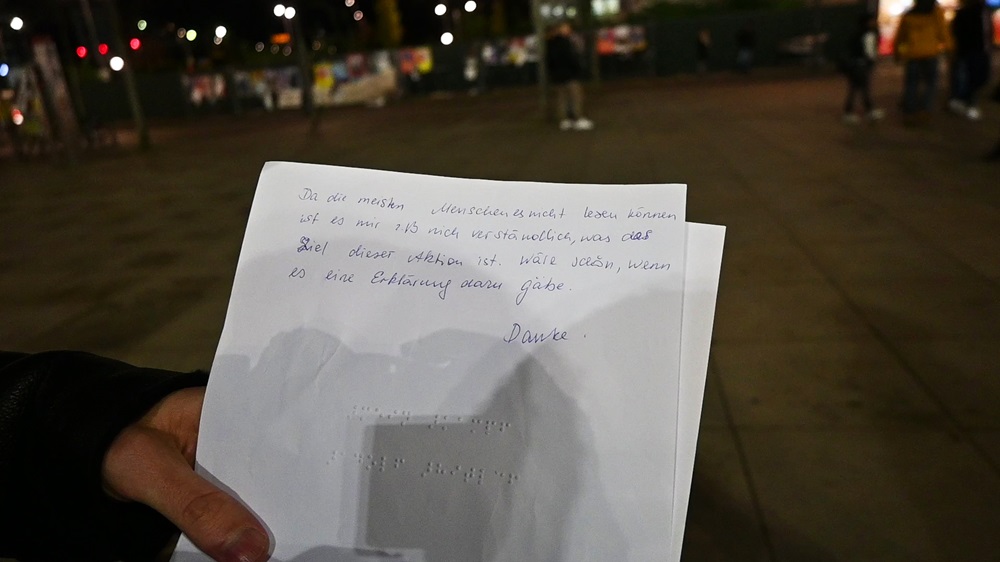 Da die meisten Menschen es nicht lesen können
ist es mir nich verständlich, was das
Ziel dieser Aktion ist. Wäre schön, wenn
es eine Erklärung dazu gäbe.
Danke.